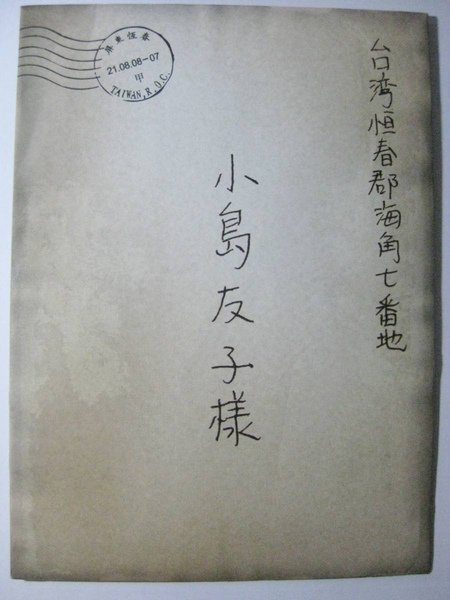 台湾恒春郡海角七番地
小島友子様
屏東恆春
21.08.08-07
甲
TAIWAN, R.O.C.